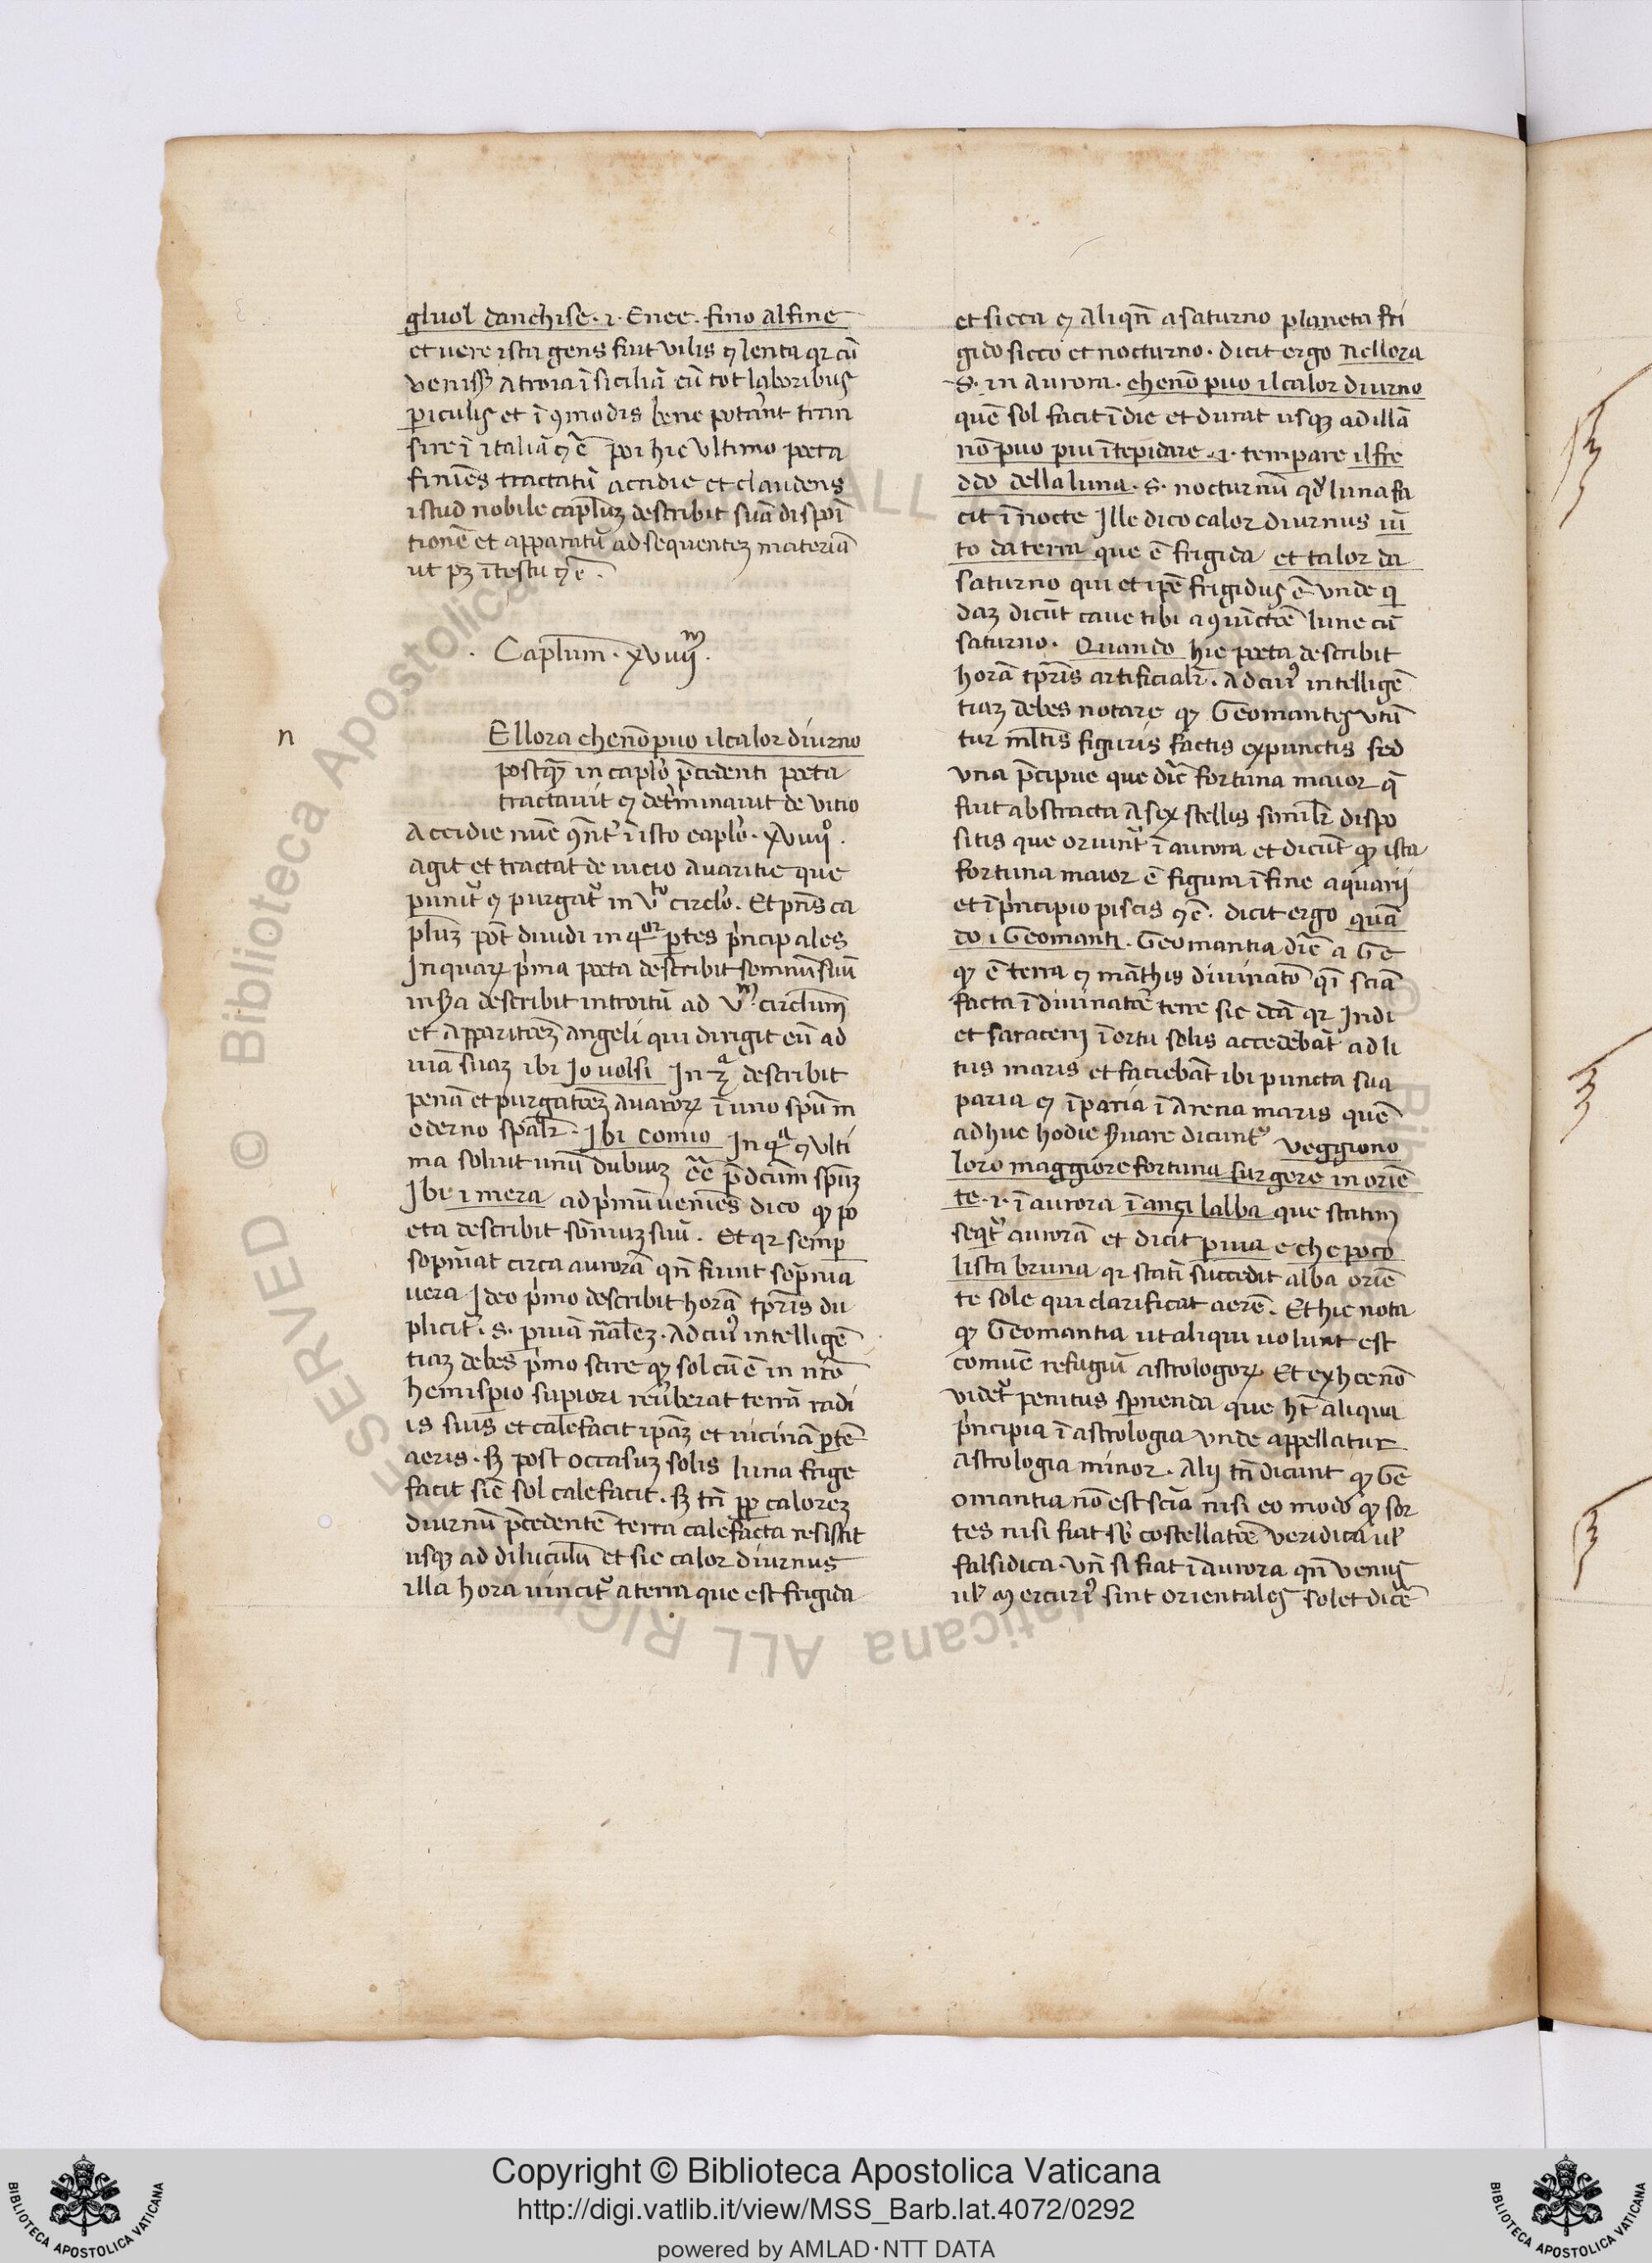 gluol danchise · i · Enee · fino alfine
et uere ista gens fuit vilis ꝯ lenta qr cū
veniss̃ a troia ī siciliā cū tot laboribus
periculis et ī ꝯmodis bene potãnt tran
sire ī italiā ꝯc̄ poi hic ultimo poeta
finiēs tractatū accidie et claudens
istud nobile capl̃uꝫ describit suā dispoi
tionē et apparatū ad sequenteꝫ materiā
ut pꝫ ī testu ꝯc̄ ·
· Capl̃um · xviiijᵐ ·
n
Ellora che nō puo il calor diurno
postq̄ꝫ in caplo p̄cedenti poeta
tractauit ꝯ det̃minauit de vitio
Accidie nūc ꝯn̄t̃ ī isto caplo · xviiijº ·
agit et tractat de uicio avaritie que
punit̃ ꝯ purgat̃ in Vᵗº circlo · Et pn̄s ca
pl̃uꝫ pōt diuidi in qºʳ p̱tes p̃ncipales
In quaꝝ p̃ma poeta describit somnū suū
in 2a describit introitū ad Vᵐ · circl̃um
et apparitōeꝫ angeli qui dirigit eū ad
uiā suaꝫ ibi Io uolsi In 3ᵃ describit
penā et purgatōeꝫ avaroꝝ ī uno spū m
oderno spāl̃r · Ibi Comio In qᵃ ꝯ ulti
ma soluit unū dubiuꝫ c̄c̄ p̄dcūm spūꝫ
Ibi i mera ad p̃mū ueniēs dico qꝫ po
eta describit sōniuꝫ suū · Et qr semp̱
sopniat circa aurorā qn̄ fiunt sopnia
uera Ideo p̃mo describit horā tp̱ris du
plicit̃ · s · p̱ uiā nāleꝫ · Ad cuiꝰ intelligē
tiaꝫ debes p̃mo scire qꝫ sol cū ē in nrō
hemisp̱io sup̱iori reũberat terrā radi
is suis et calefacit ip̄aꝫ et uicinā p̱tē
aeris · sꝫ post occasuꝫ solis luna frige
facit sic̄ sol calefacit · sꝫ tn̄ pp̱ caloreꝫ
diurnū p̄cedentē terra calefacta resistit
usqꝫ ad diluculū et sic calor diurnus
illa hora uincit̃ a terra que est frigida
et sicca ꝯ aliqn̄ a saturno planeta fri
gido sicco et nocturno · dicit ergo Nellora
s · in aurora · che nō puo il calor diurno
quē sol facit ī die et durat usqꝫ ad illā
nō puo piu ītepidare · i · temp̱are il fre
ddo della luna · s · nocturnū qd̃ luna fa
cit ī nocte Ille dico calor diurnus uī
to da terra que ē frigida et talor da
saturno qui et ip̄e frigidus ē unde q̱
daꝫ dicūt caue tibi a ꝯiūctōe lune cū
saturno · Quando hic poeta describit
horā tp̱ris artificialr̄ · Ad cuiꝰ intelligē
tiaꝫ debes notare qꝫ Geomantes utū
tur ml̃tis figuris factis ex punctis sed
una p̄cipue que dic̄ fortuna maior q̄
fuit abstracta a sex stellis simil̃r dispo
sitis que oriunt̃ ī aurora et dicūt qꝫ ista
fortuna maior ē figura ī fine aquarij
et ī p̃ncipio piscis ꝯc̄ · dicit ergo quā
do i Geomanti · Geomantia dic̄ a Ge
qꝫ ē terra ꝯ māthis diuinatō q̄i scīa
facta ī diuinatōe terre sic dcā qr Indi
et saraceni ī ortu solis accedebāt ad li
tus maris et faciebāt ibi puncta sua
paria ꝯ īparia ī arena maris quē
adhuc hodie s̃uare dicunt̃ veggiono
loro maggiore fortuna surgere in oriē
te · i · ī aurora ī anci lalba que statim
seqt̃ aurorā et dicit p̱ uia e che poco
li sta bruna qr statī succedit alba oriē
te sole qui clarificat aerē · Et hic nota
qꝫ Geomantia ut aliqui uolunt est
comūe refugiū astrologoꝝ Et ex hoc nō
videt̃ penitus sp̱nenda que ht̄ aliqua
p̃ncipia ī astrologia unde appellatur
Astrologia minor · Alij tn̄ dicunt qꝫ Ge
omantia nō est scīa nisi eo modo qꝫ sor
tes nisi fiat sb̃ costellatōe veridica ul̃
falsidica · Vn̄ si fiat ī aurora qn̄ venus
ul̃ mercuriꝰ sint orientales solet dicē
Copyright © Biblioteca Apostolica Vaticana
http://digi.vatlib.it/view/MSS_Barb.lat.4072/0292
powered by AMLAD · NTT DATA